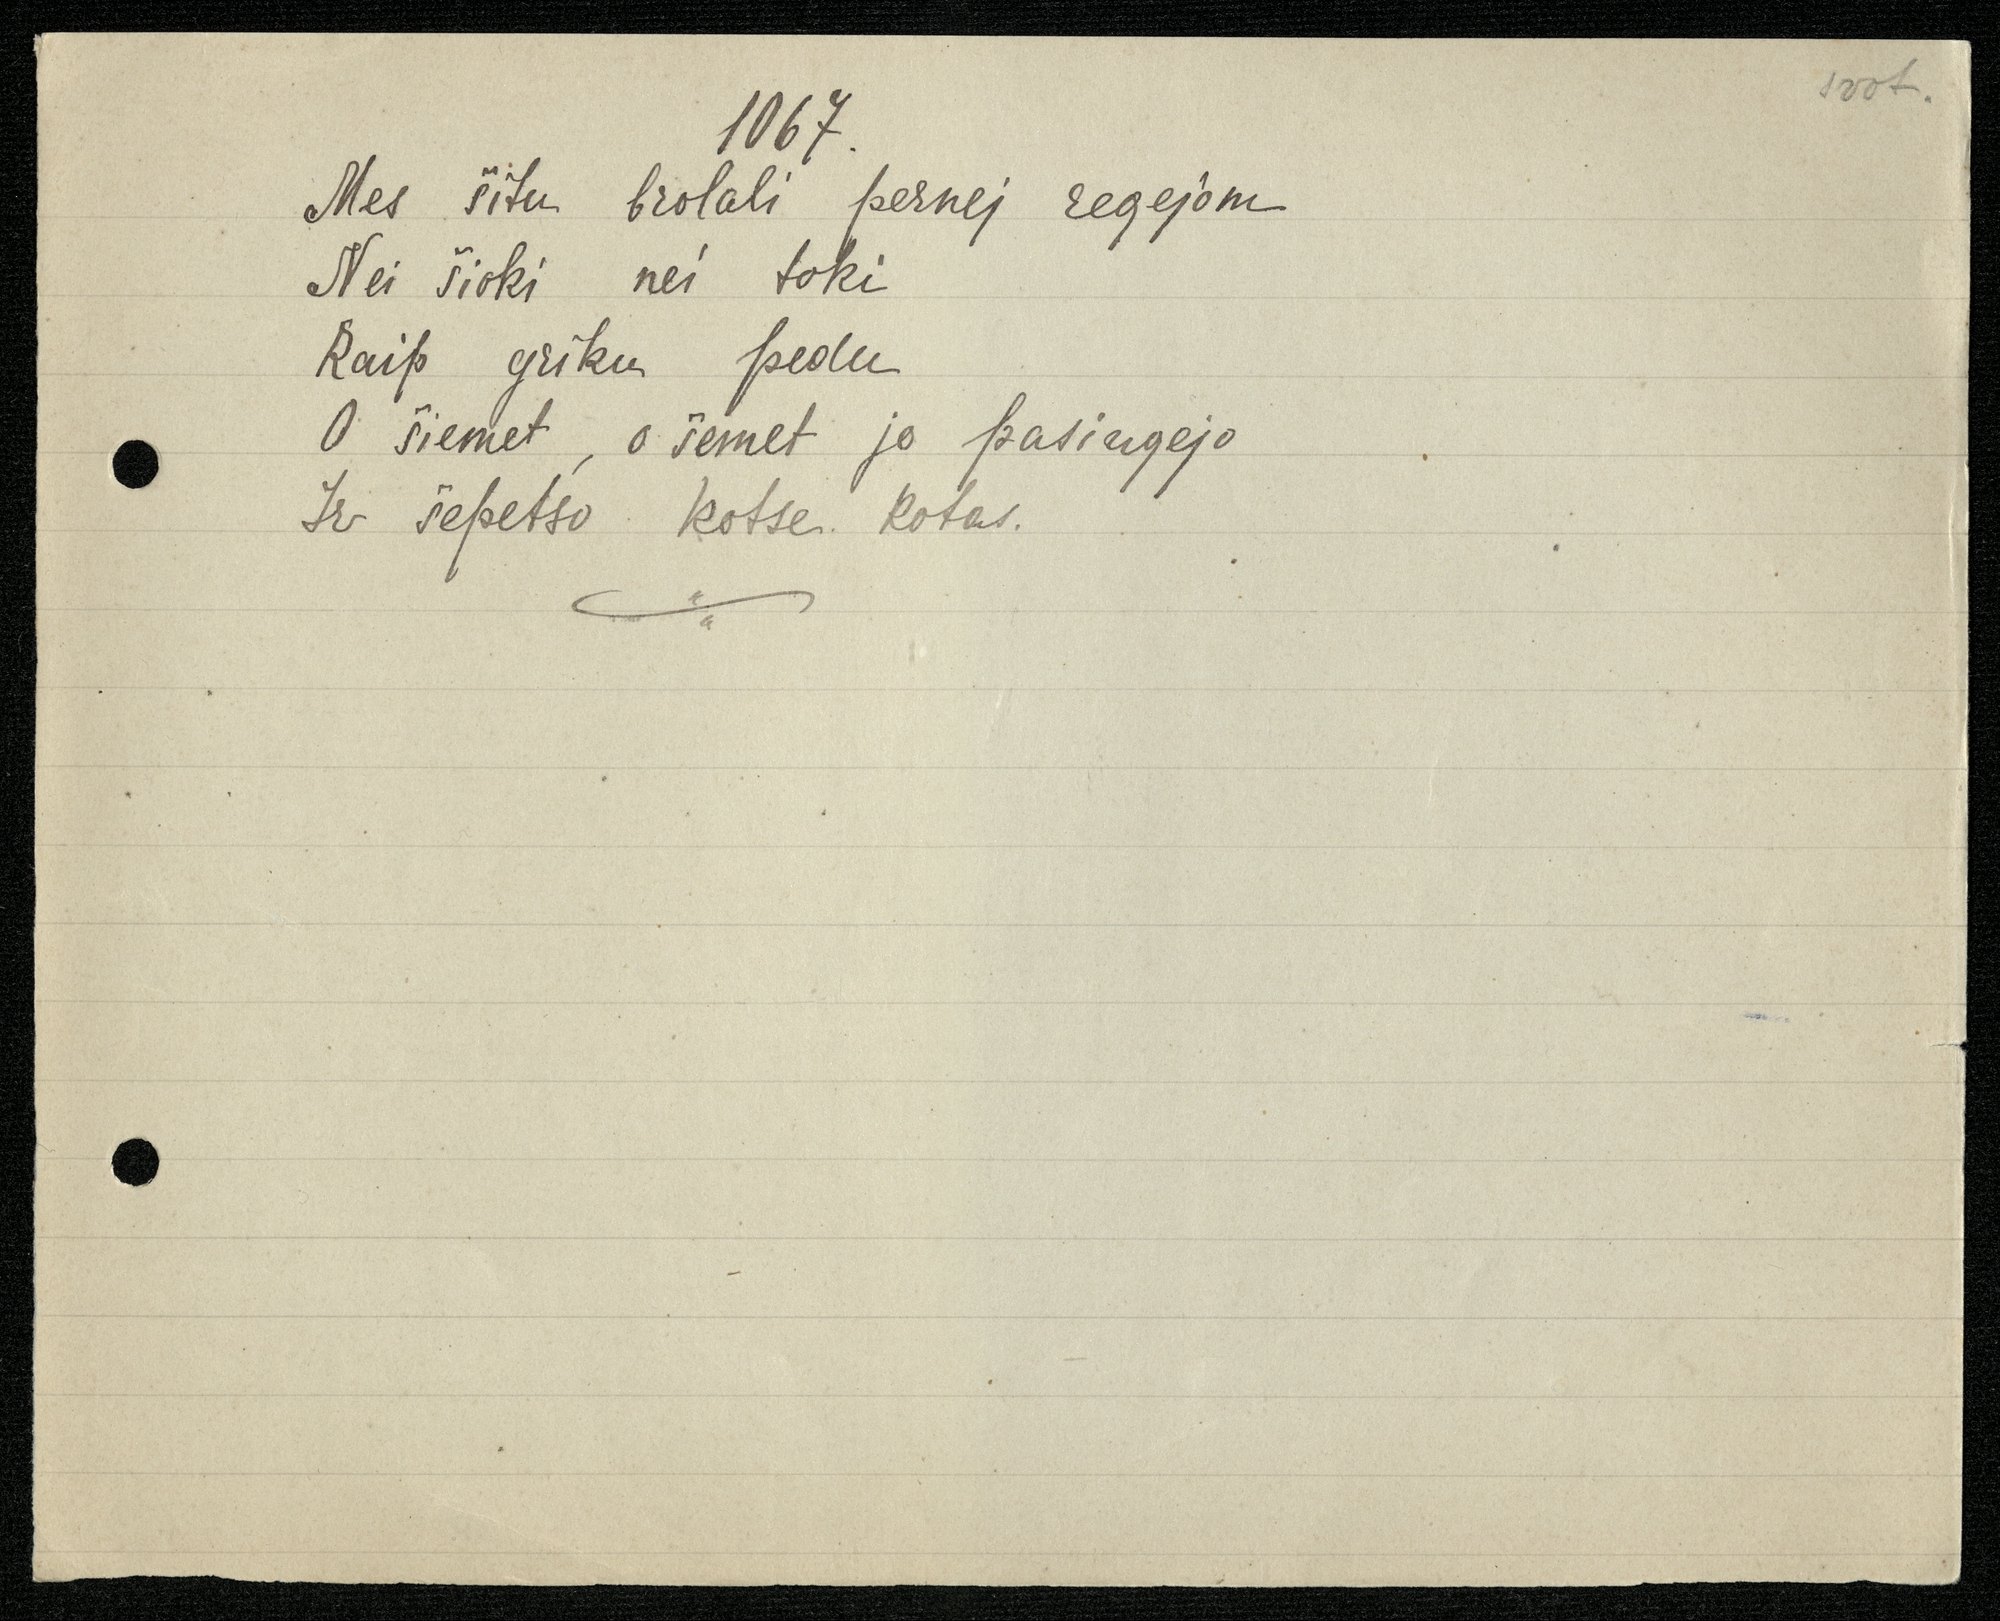 svot.
1067.
Mes šitu brolali pernej regejom
Nei šioki nei toki
Kaip griku pedu
O šiemet, o šemet jo pasirgejo
Ir šepetso kotse kotas.